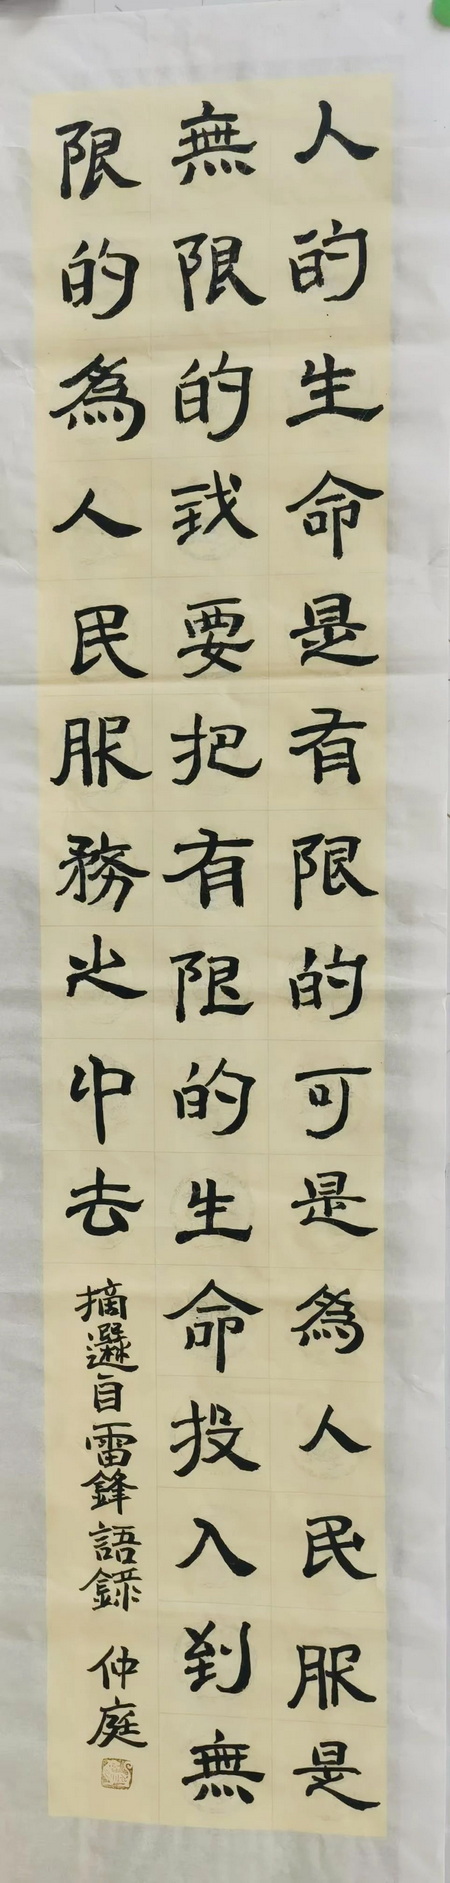 人的生命是有限的可是為人民服是
無限的我要把有限的生命投入到無
限的為人民服務之中去
摘選自雷鋒語錄 仲庭